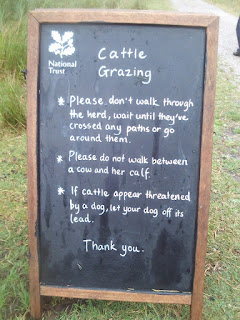 National
Trust
Cattle
Grazing
* Please don't walk through
the herd, wait until they've
crossed any paths or go
around them.
* Please do not walk between
a cow and her calf.
* If cattle appear threatened
by a dog, let your dog off its
lead.
Thank you.